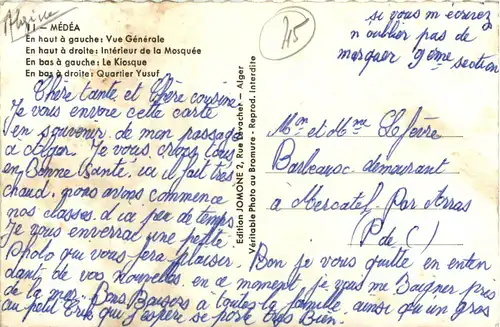 Algérie
11 - MÉDÉA
En haut à gauche: Vue Générale
En haut à droite: Intérieur de la Mosquée
En bas à gauche: Le Kiosque
En bas à droite: Quartier Yusuf
45
si vous m'écrivez
n'oublier pas de
marquer 9ème section
Chère tante et Chère cousine
Je vous envoie cette carte
en souvenir de mon passage
à Alger. Je vous crois tous
en Bonne Santé, ici il fait très
chaud, nous avons commencé
nos classes. d'ici peu de temps
Je vous enverrai une petite
Photo qui vous fera plaisir. Bon je vous quitte en enten
dant de vos nouvelles, en ce moment je vais me baigner près
de la mer. Bons Baisers à toutes la famille ainsi qu'un gros
au petit Eric que j'espère se porte très Bien.
Edition JOMONE 2, Rue Levacher - Alger
Véritable Photo au Bromure - Reprod. Interdite
Mr et Mme Lefèvre
demeurant
à Mercatel Par Arras
P de C)